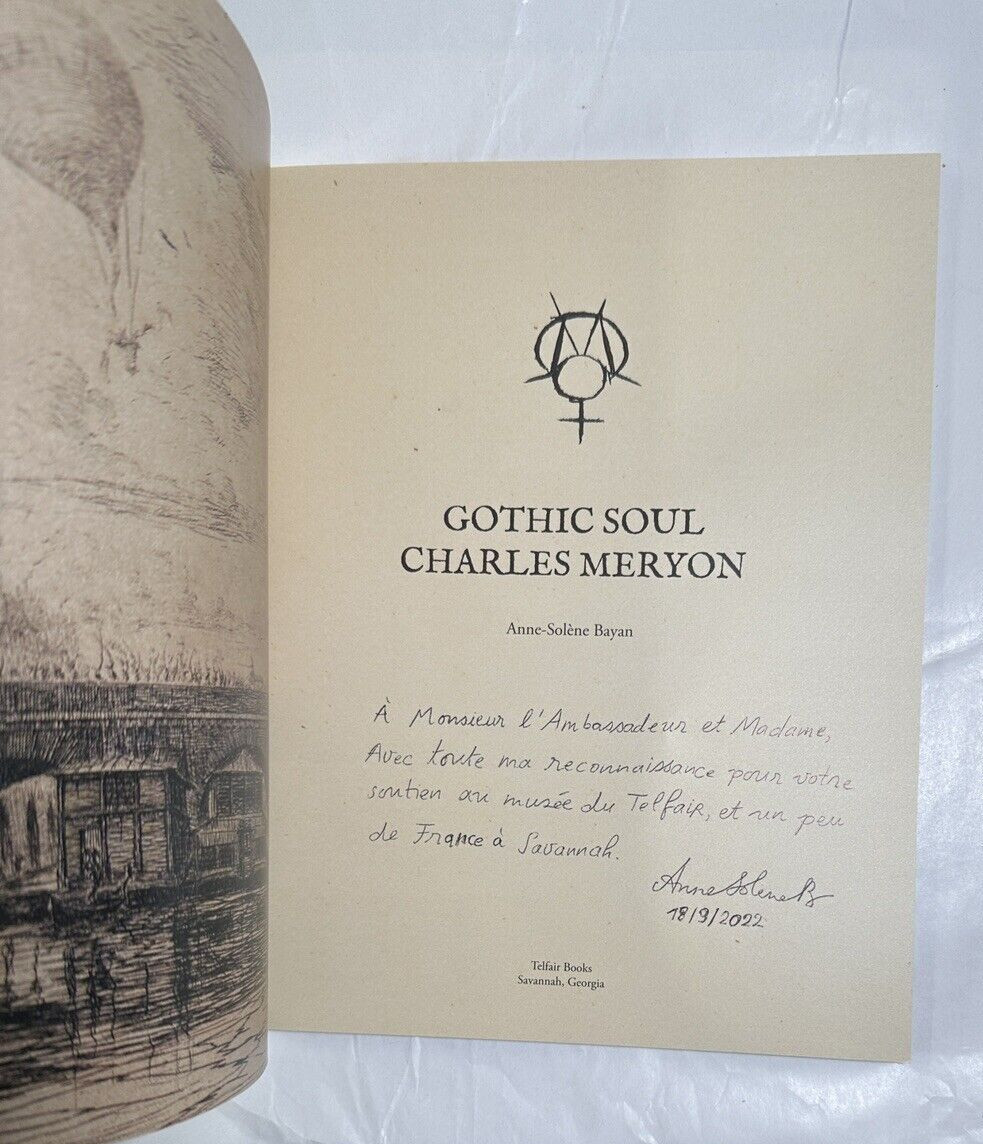 GOTHIC SOUL
CHARLES MERYON
Anne-Solène Bayan
À Monsieur l'Ambassadeur et Madame,
Avec toute ma reconnaissance pour votre
soutien au musée du Telfair, et un peu
de France à Savannah.
Anne Solene B
18/9/2022
Telfair Books
Savannah, Georgia